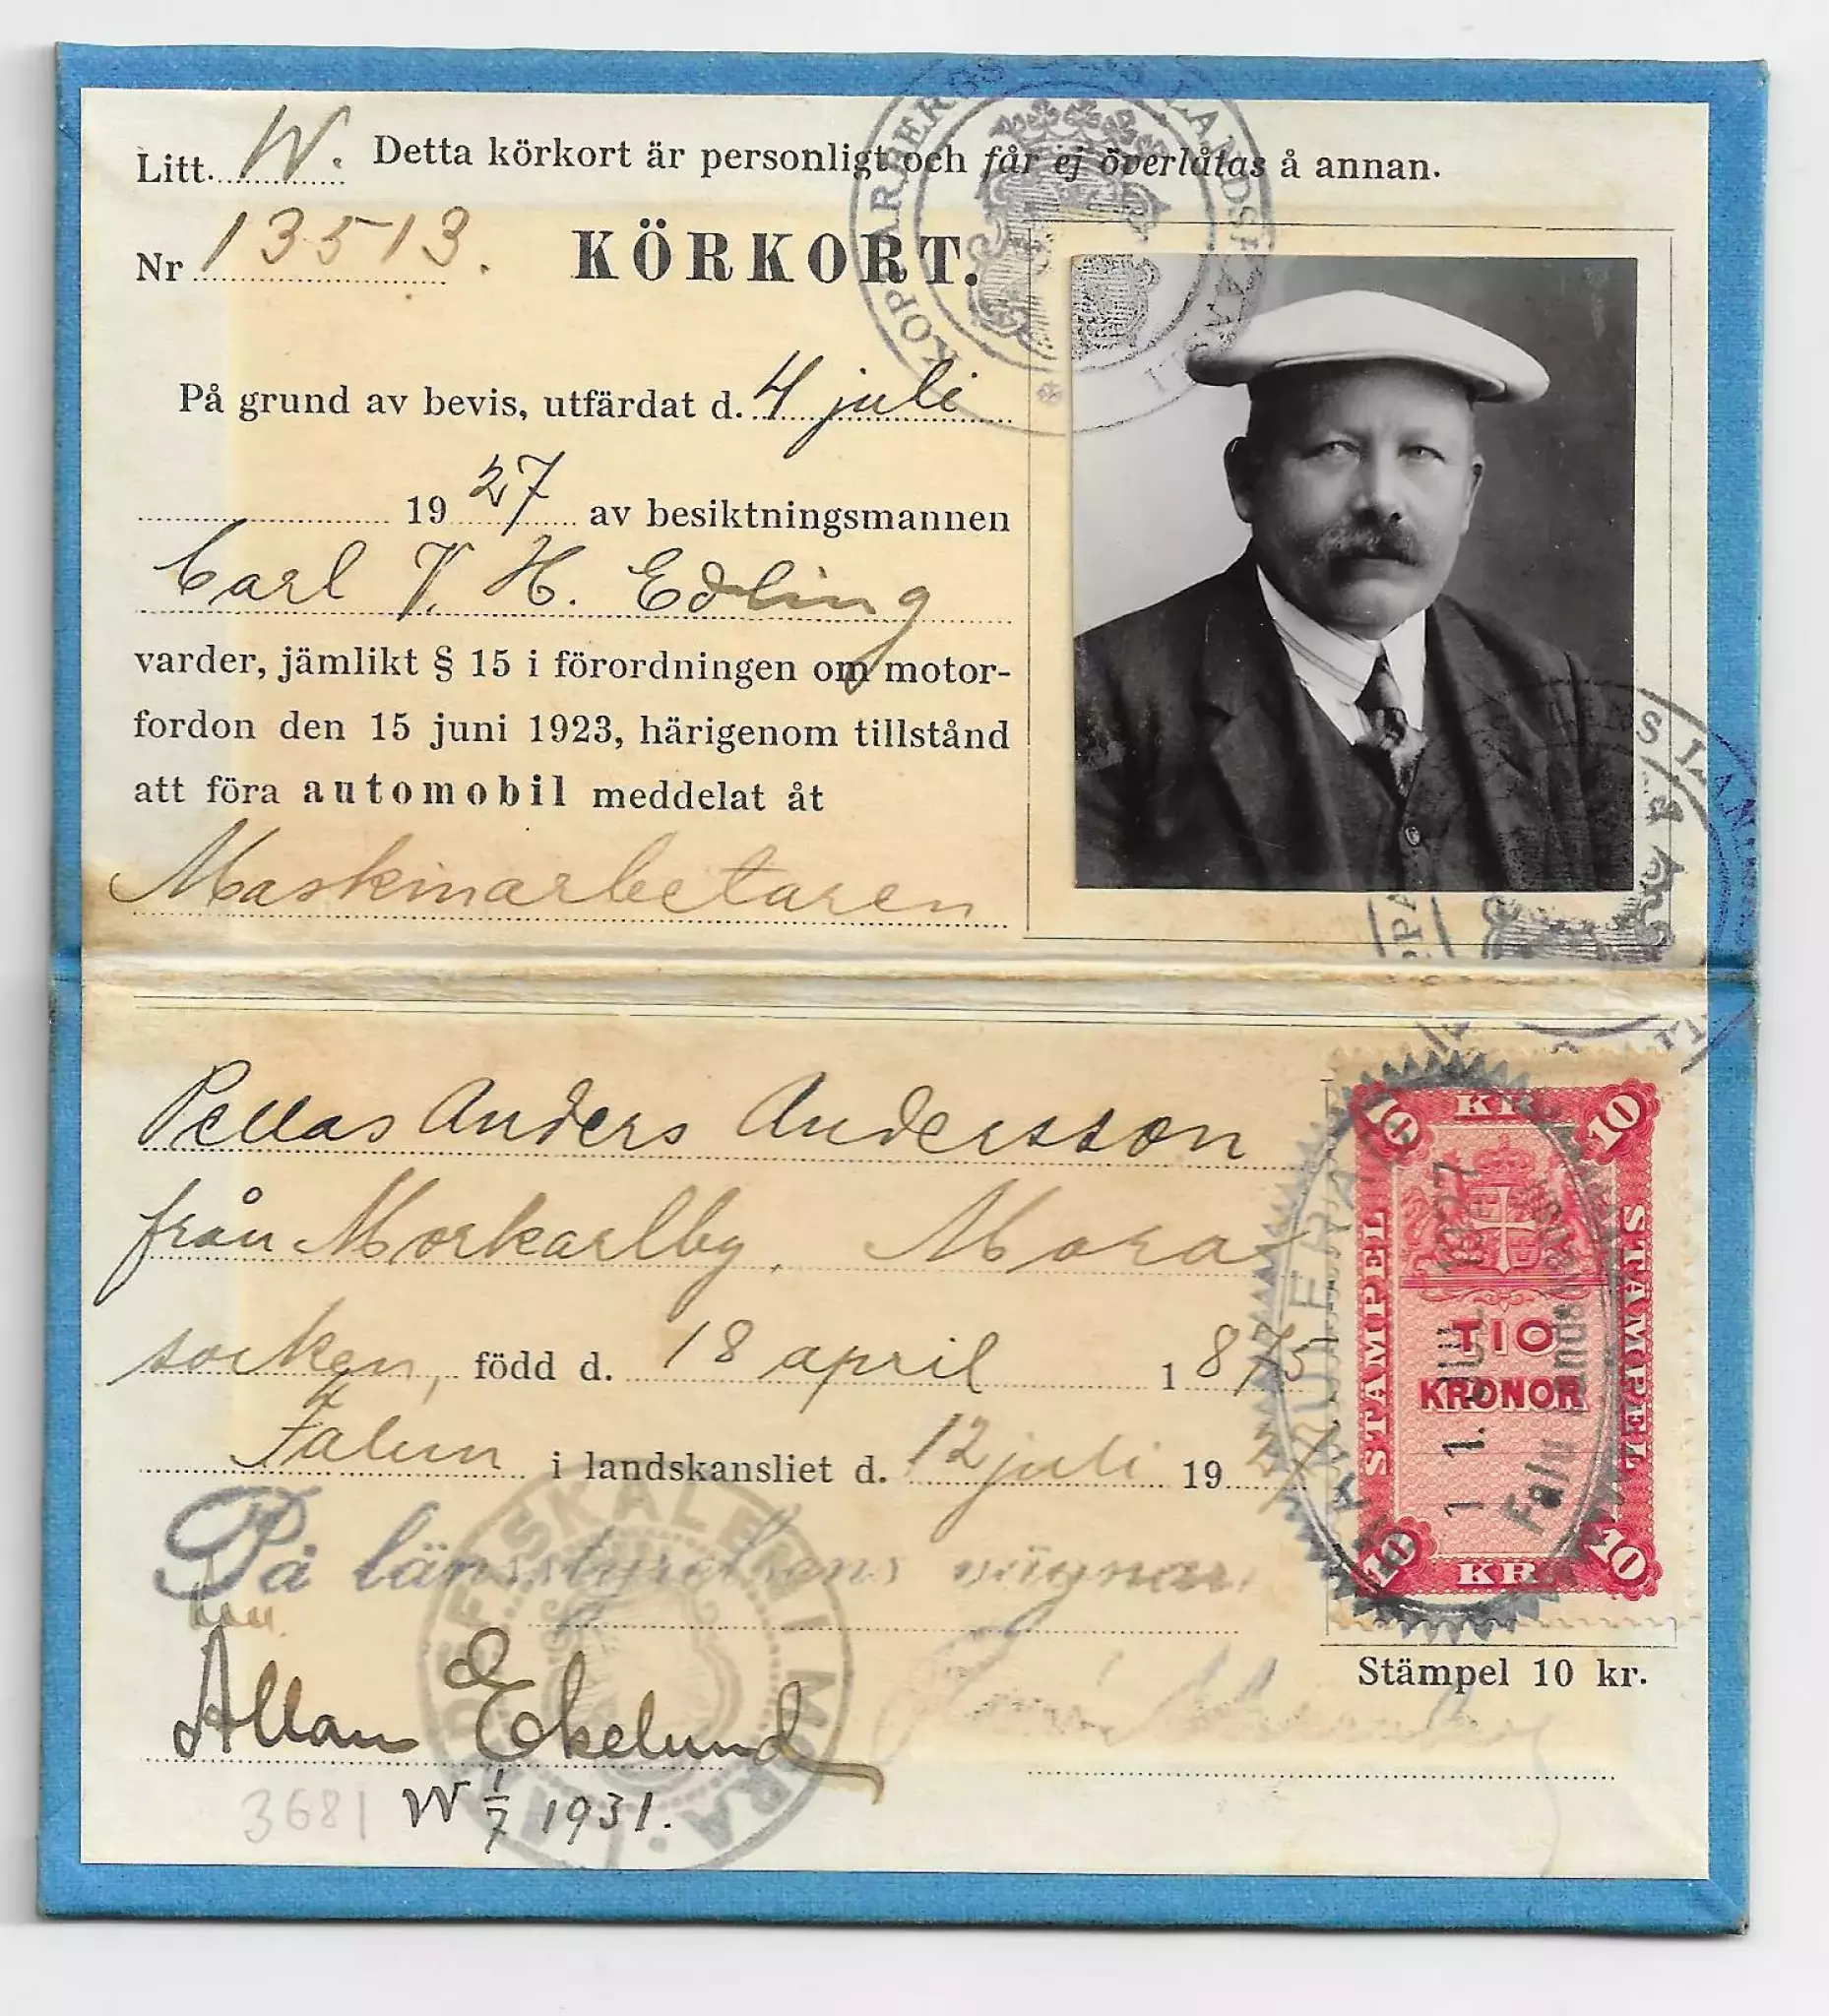 Litt. W. Detta körkort är personligt och får ej överlåtas å annan.
Nr 13513. KÖRKORT.
KOPPARBERGS LÄNS LANDSKANSLI
På grund av bevis, utfärdat d. 4 juli
1927 av besiktningsmannen
Carl V. H. Edling
varder, jämlikt § 15 i förordningen om motor-
fordon den 15 juni 1923, härigenom tillstånd
att föra automobil meddelat åt
Maskinarbetaren
Pellas Anders Andersson
från Morkarlby, Mora
socken, född d. 18 april 1873
Falun i landskansliet d. 12 juli 1927
På länsstyrelsens vägnar,
KR
10 10
STÄMPEL STÄMPEL
TIO
KRONOR
10 10
KR
11. JUL 1927
Falu
Stämpel 10 kr.
Allan Ekelund
LANDSFISKALEN I MORA
3681 W 1/7 1931.